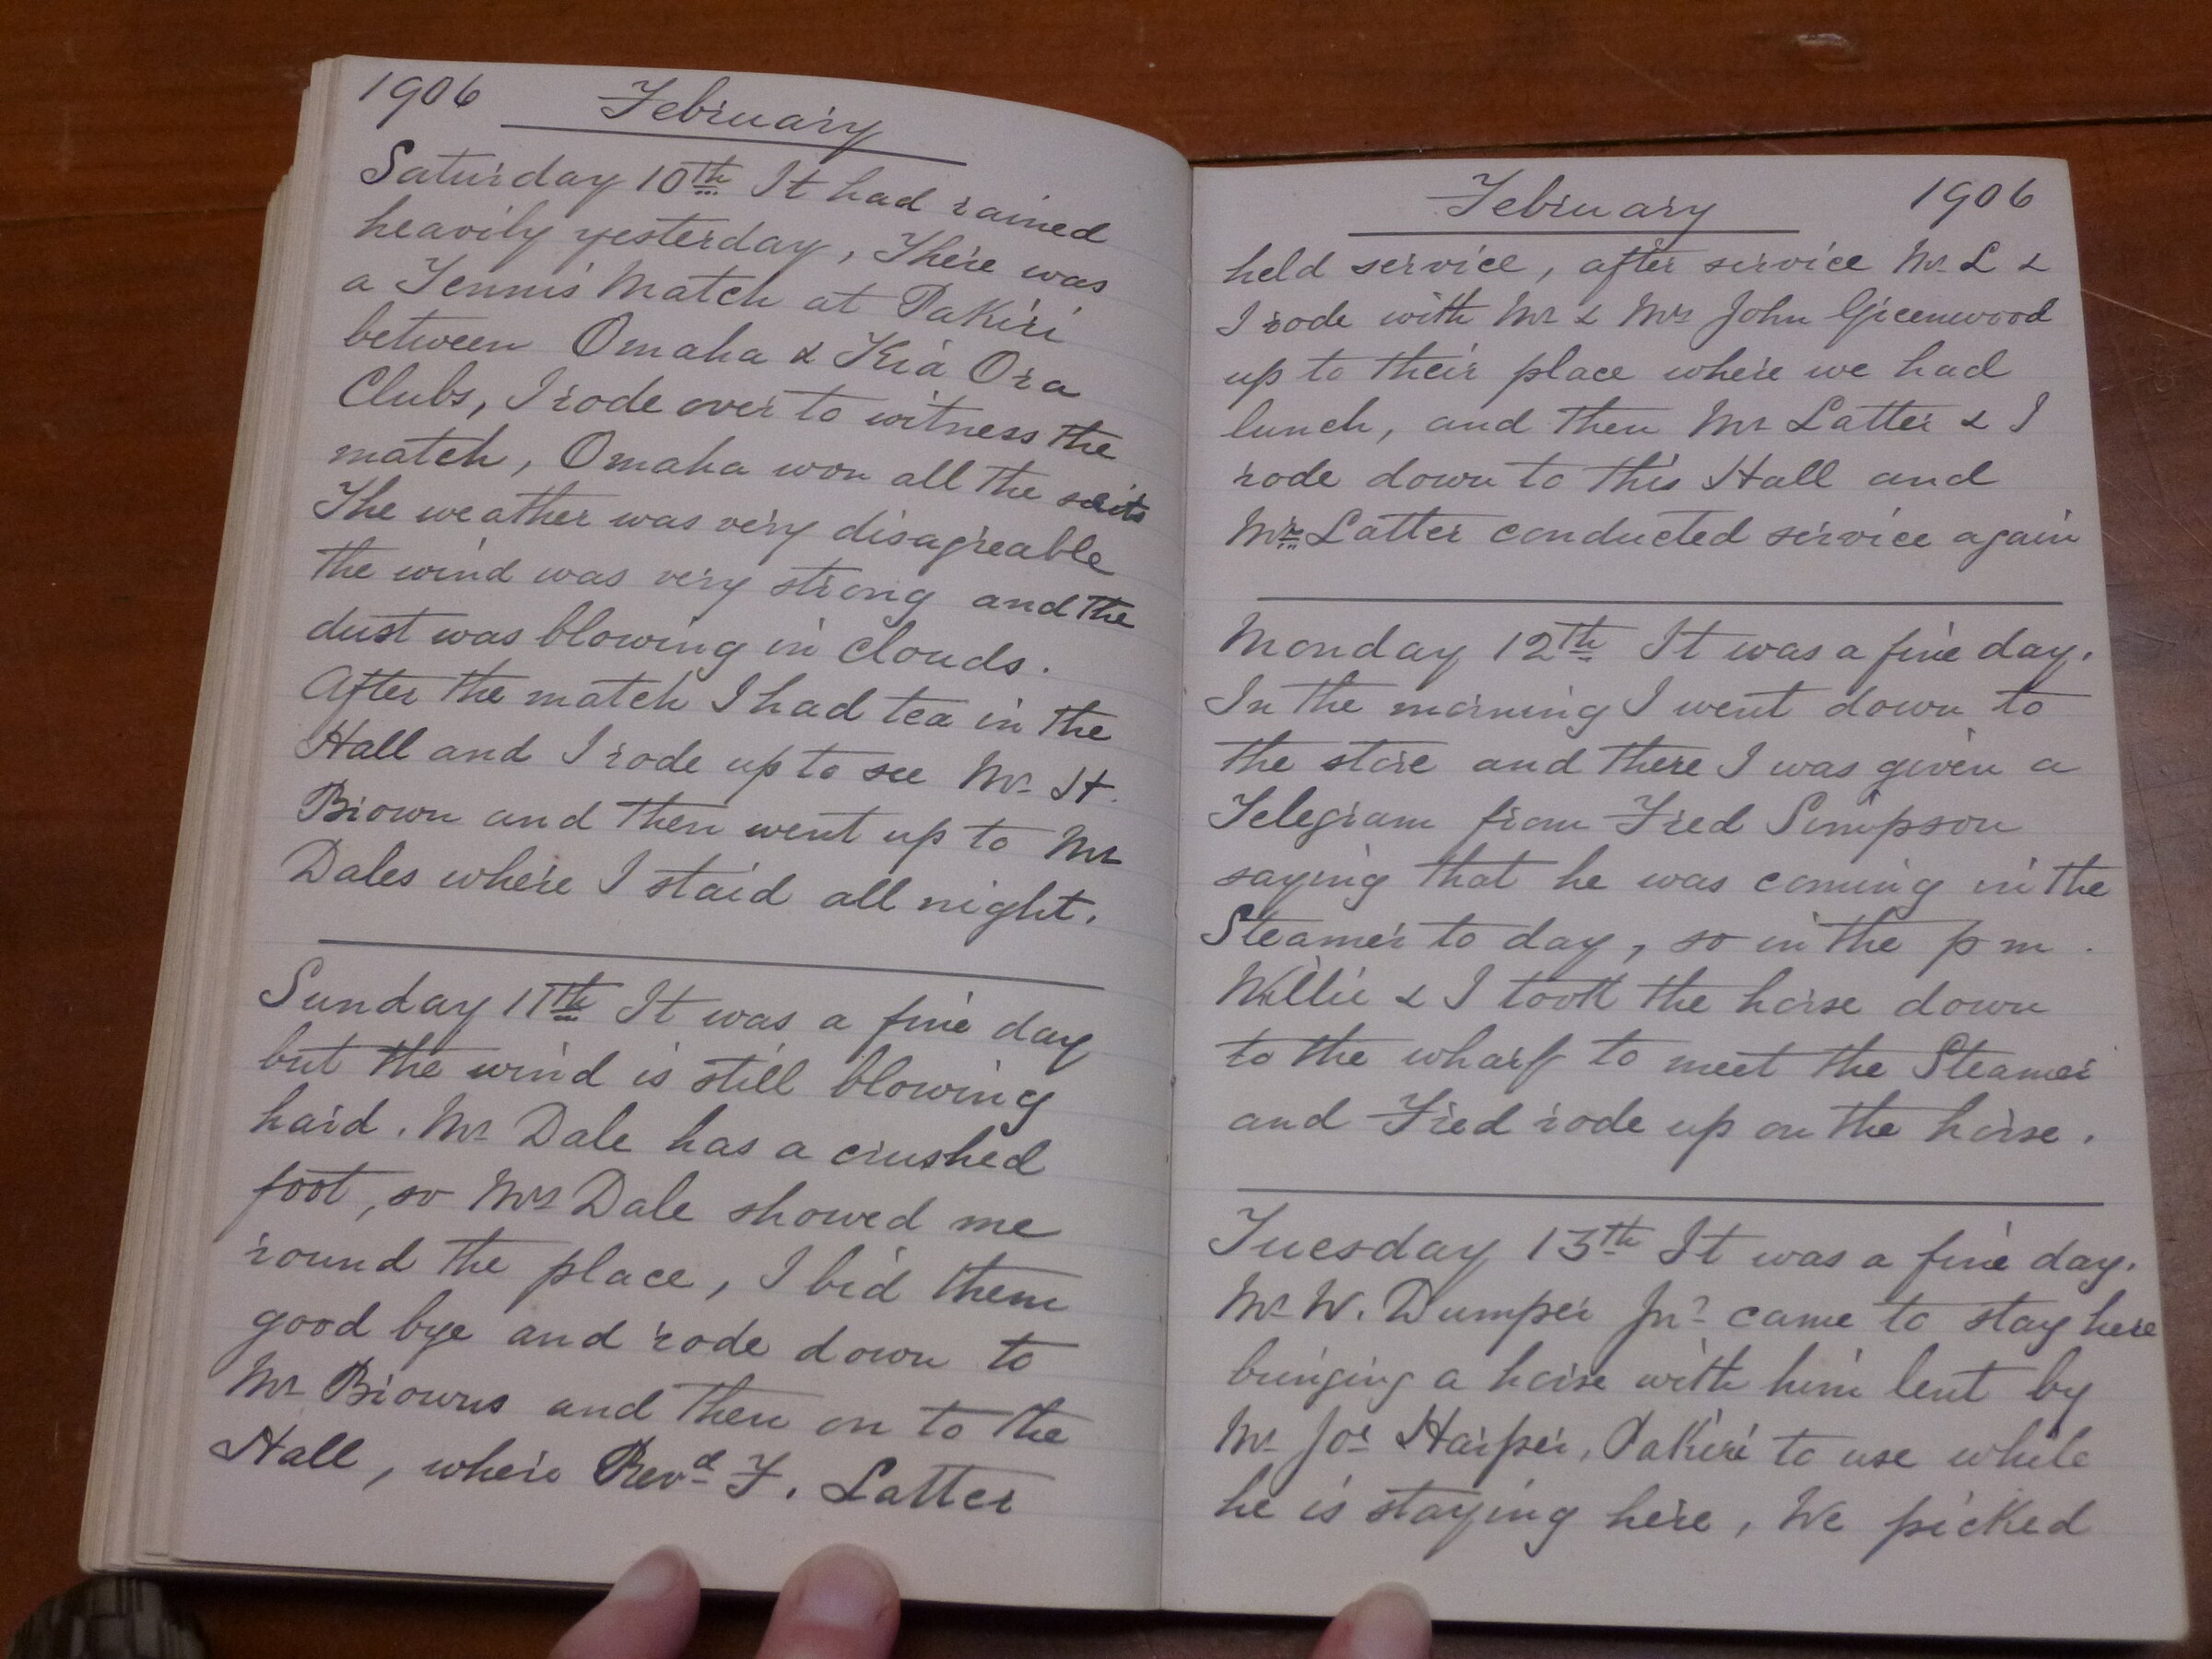 1906 February
Saturday 10th It had rained
heavily yesterday, There was
a Tennis Match at Pakiri
between Omaha & Kia Ora
Clubs, I rode over to witness the
match, Omaha won all the setts
The weather was very disagreable
the wind was very strong and the
dust was blowing in clouds.
After the match I had tea in the
Hall and I rode up to see Mr H.
Brown and then went up to Mr
Dales where I staid all night.
Sunday 11th It was a fine day
but the wind is still blowing
hard. Mr Dale has a crushed
foot, so Mrs Dale showed me
round the place, I bid them
good bye and rode down to
Mr Browns and then on to the
Hall, where Revd F. Latter
February 1906
held service, after service Mr L &
I rode with Mr & Mrs John Greenwood
up to their place where we had
lunch, and then Mr Latter & I
rode down to this Hall and
Mr Latter conducted service again
Monday 12th It was a fine day.
In the morning I went down to
the store and there I was given a
Telegram from Fred Simpson
saying that he was coming in the
Steamer to day, so in the p m.
Willie & I took the horse down
to the wharf to meet the Steamer
and Fred rode up on the horse.
Tuesday 13th It was a fine day.
Mr W. Dumper Jnr came to stay here
bringing a horse with him lent by
Mr Jos Harper, Pakiri to use while
he is staying here, We picked